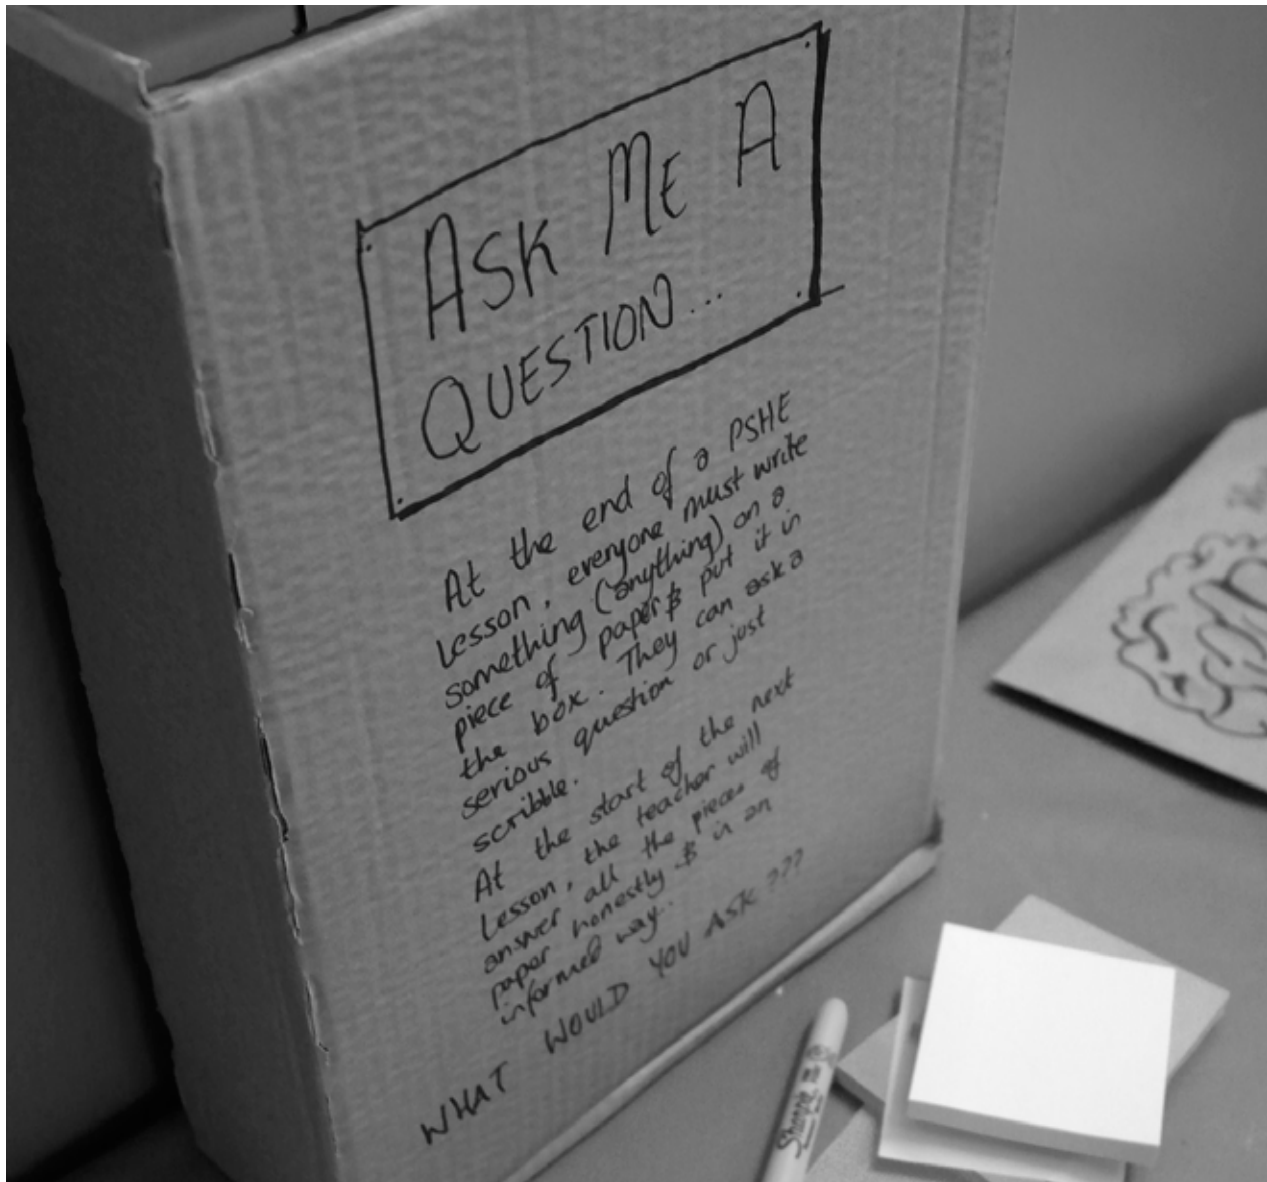 ASK ME A
QUESTION...
At the end of a PSHE
Lesson, everyone must write
something (anything) on a
piece of paper & put it in
the box. They can ask a
serious question or just
scribble.
At the start of the next
Lesson, the teacher will
answer all the pieces of
paper honestly & in an
informed way..
WHAT WOULD YOU ASK???
Sharpie